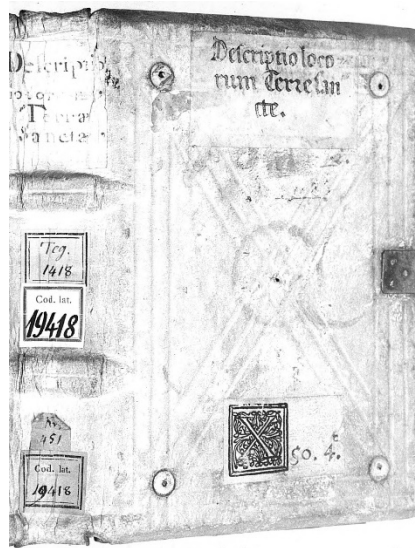 Descriptio
Terræ
Sanctæ
Teg.
1418
Cod. lat.
19418
Nr.
451
Cod. lat.
19418
Descriptio loco
rum Terre san
cte.
2.
X
50. 4.